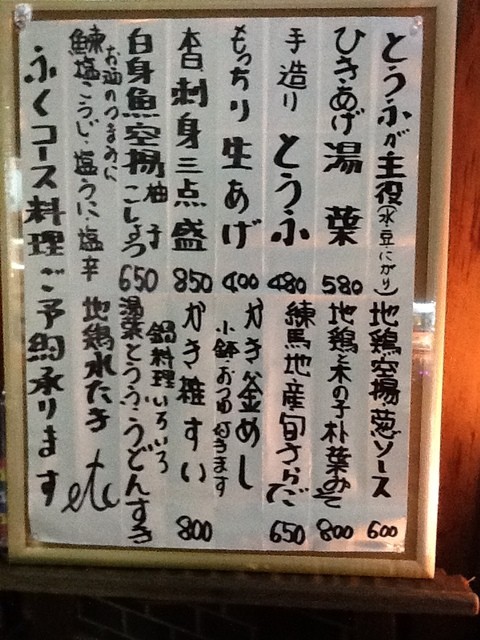 とうふが主役(水・豆・にがり)
ひきあげ湯葉 580
手造りとうふ 480
もっちり生あげ 400
本日刺身三点盛 850
白身魚空揚柚子こしょう 650
お酒のつまみに
鰊塩こうじ・塩うに・塩辛
ふくコース料理ご予約承ります
地鶏空揚葱ソース 600
地鶏と木の子朴葉みそ 800
練馬地産旬さらだ 650
かき釜めし
小鉢・おつゆ付きます
かき雑すい 800
鍋料理いろいろ
湯葉とうふうどんすき
地鶏水たき etc